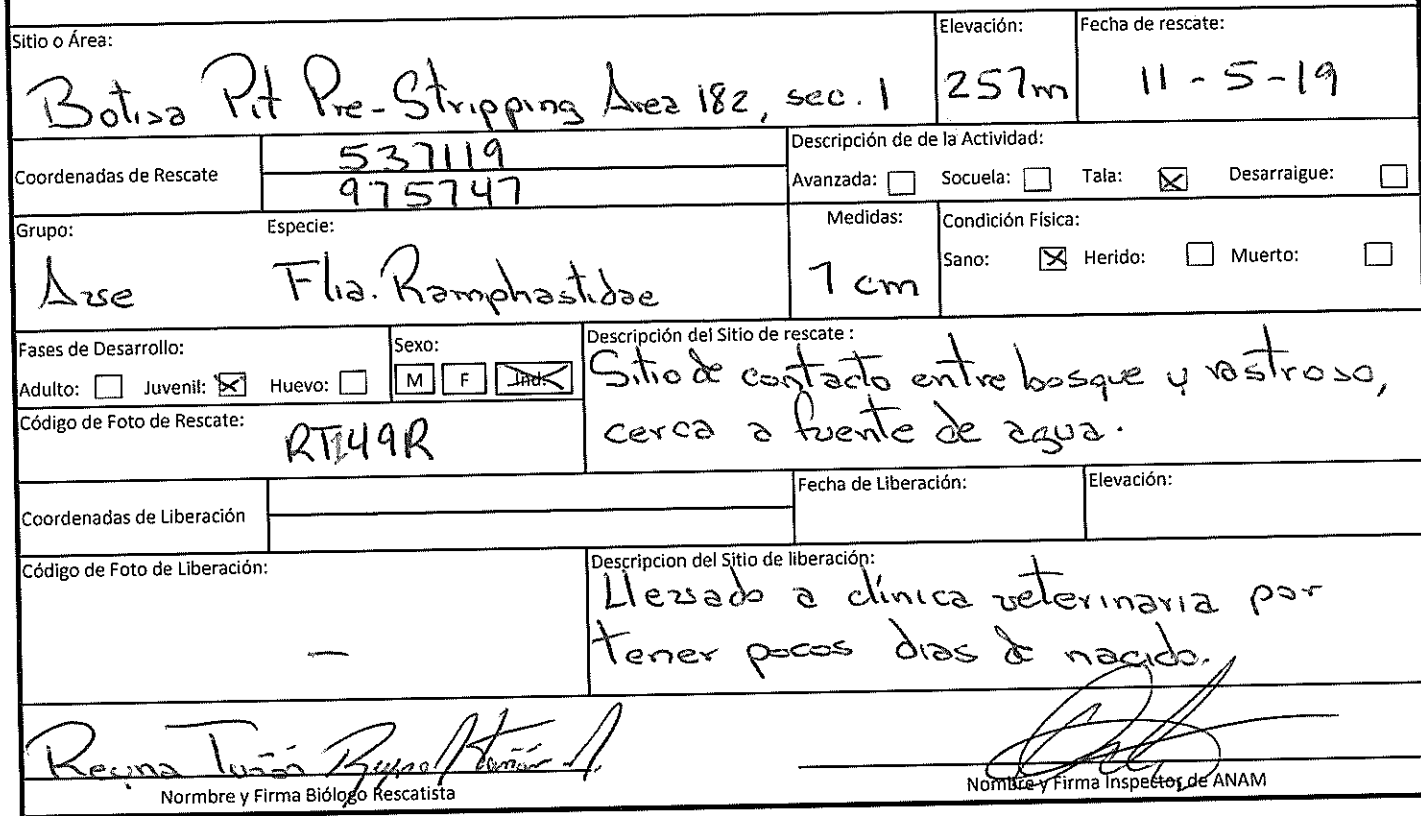 Sitio o Área:
Elevación:
Fecha de rescate:
Botija Pit Pre-Stripping Area 182, sec. 1
257m
11-5-19
Coordenadas de Rescate
537119
975747
Descripción de de la Actividad:
Avanzada: Socuela: Tala: Desarraigue:
Grupo:
Especie:
Medidas:
Condición Física:
Ave
Flia. Ramphastidae
7 cm
Sano: Herido: Muerto:
Fases de Desarrollo:
Adulto: Juvenil: Huevo:
Sexo:
M F Ind.
Descripción del Sitio de rescate :
Sitio de contacto entre bosque y rastrojo,
cerca a fuente de agua.
Código de Foto de Rescate:
RT149R
Coordenadas de Liberación
Fecha de Liberación:
Elevación:
Código de Foto de Liberación:
—
Descripcion del Sitio de liberación:
Llevado a clínica veterinaria por
tener pocos dias de nacido.
Reyna Tuñón
Normbre y Firma Biólogo Rescatista
Nombre y Firma Inspector de ANAM